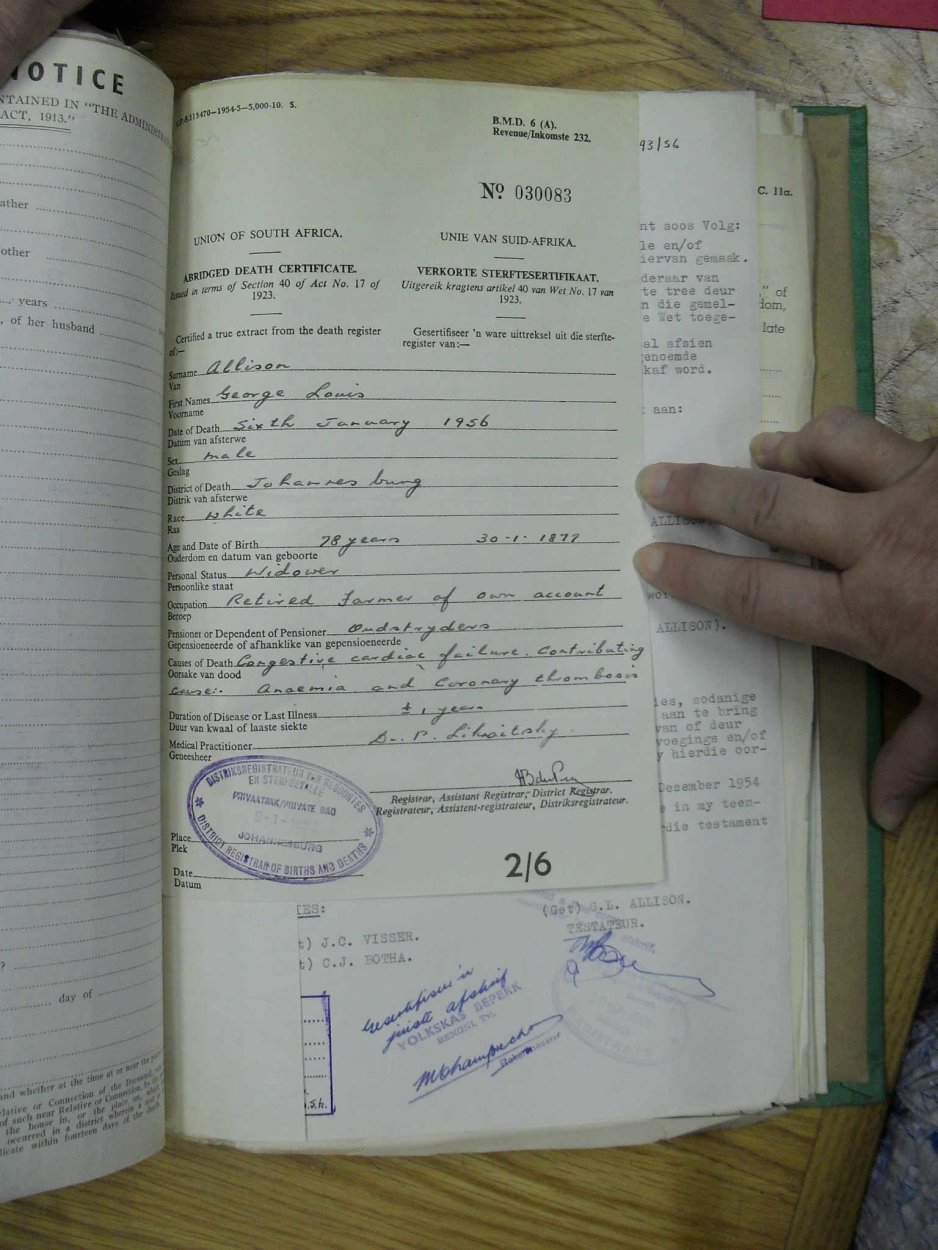 NOTICE
ACT, 1913."
years
, of her husband
day of
and whether at the time at or near the
lative or Connection of the Deceased,
of such near Relative or Connection,
the house in, or the place
occurred in a district wherein
licate within fourteen days of the
115470—1954-5—5,000-10. S.
B.M.D. 6 (A).
Revenue/Inkomste 232.
No 030083
UNION OF SOUTH AFRICA.
UNIE VAN SUID-AFRIKA.
ABRIDGED DEATH CERTIFICATE.
VERKORTE STERFTESERTIFIKAAT.
Issued in terms of Section 40 of Act No. 17 of
1923.
Uitgereik kragtens artikel 40 van Wet No. 17 van
1923.
Certified a true extract from the death register
of:—
Gesertifiseer 'n ware uittreksel uit die sterfte-
register van:—
Surname Allison
Van
First Names George Louis
Voorname
Date of Death Sixth January 1956
Datum van afsterwe
Sex male
Geslag
District of Death Johannesburg
Distrik van afsterwe
Race White
Ras
Age and Date of Birth 78 years 30-1-1877
Ouderdom en datum van geboorte
Personal Status Widower
Persoonlike staat
Occupation Retired Farmer of own account
Beroep
Pensioner or Dependent of Pensioner Oudstryders
Gepensioeneerde of afhanklike van gepensioeneerde
Causes of Death Congestive cardiac failure. Contributing
Oorsake van dood
cause:- Anaemia and Coronary thrombosis
Duration of Disease or Last Illness ± 1 year
Duur van kwaal of laaste siekte
Medical Practitioner Dr. P.
Geneesheer
Registrar, Assistant Registrar, District Registrar.
Registrateur, Assistent-registrateur, Distriksregistrateur.
DISTRIKSREGISTRATEUR VAN GEBOORTES
EN STERFGEVALLE
PRIVAATSAK/PRIVATE BAG
JOHANNESBURG
DISTRICT REGISTRAR OF BIRTHS AND DEATHS
Place
Plek
Date
Datum
2/6
93/56
C. 11a.
nt soos Volg:
le en/of
iervan gemaak.
deraar van
te tree deur
n die gemel-
e Wet toege-
al afsien
enoemde
kaf word.
aan:
" of
dom,
late
ALLISON
ALLISON).
ies, sodanige
aan te bring
van of deur
voegings en/of
y hierdie oor-
Desember 1954
e in my teen-
die testament
IES:
(Get) G.L. ALLISON.
TESTATEUR.
t) J.C. VISSER.
t) C.J. BOTHA.
Gesertifiseer 'n
juiste afskrif
VOLKSKAS BEPERK
BENONI, Tvl.
Rekenmeester